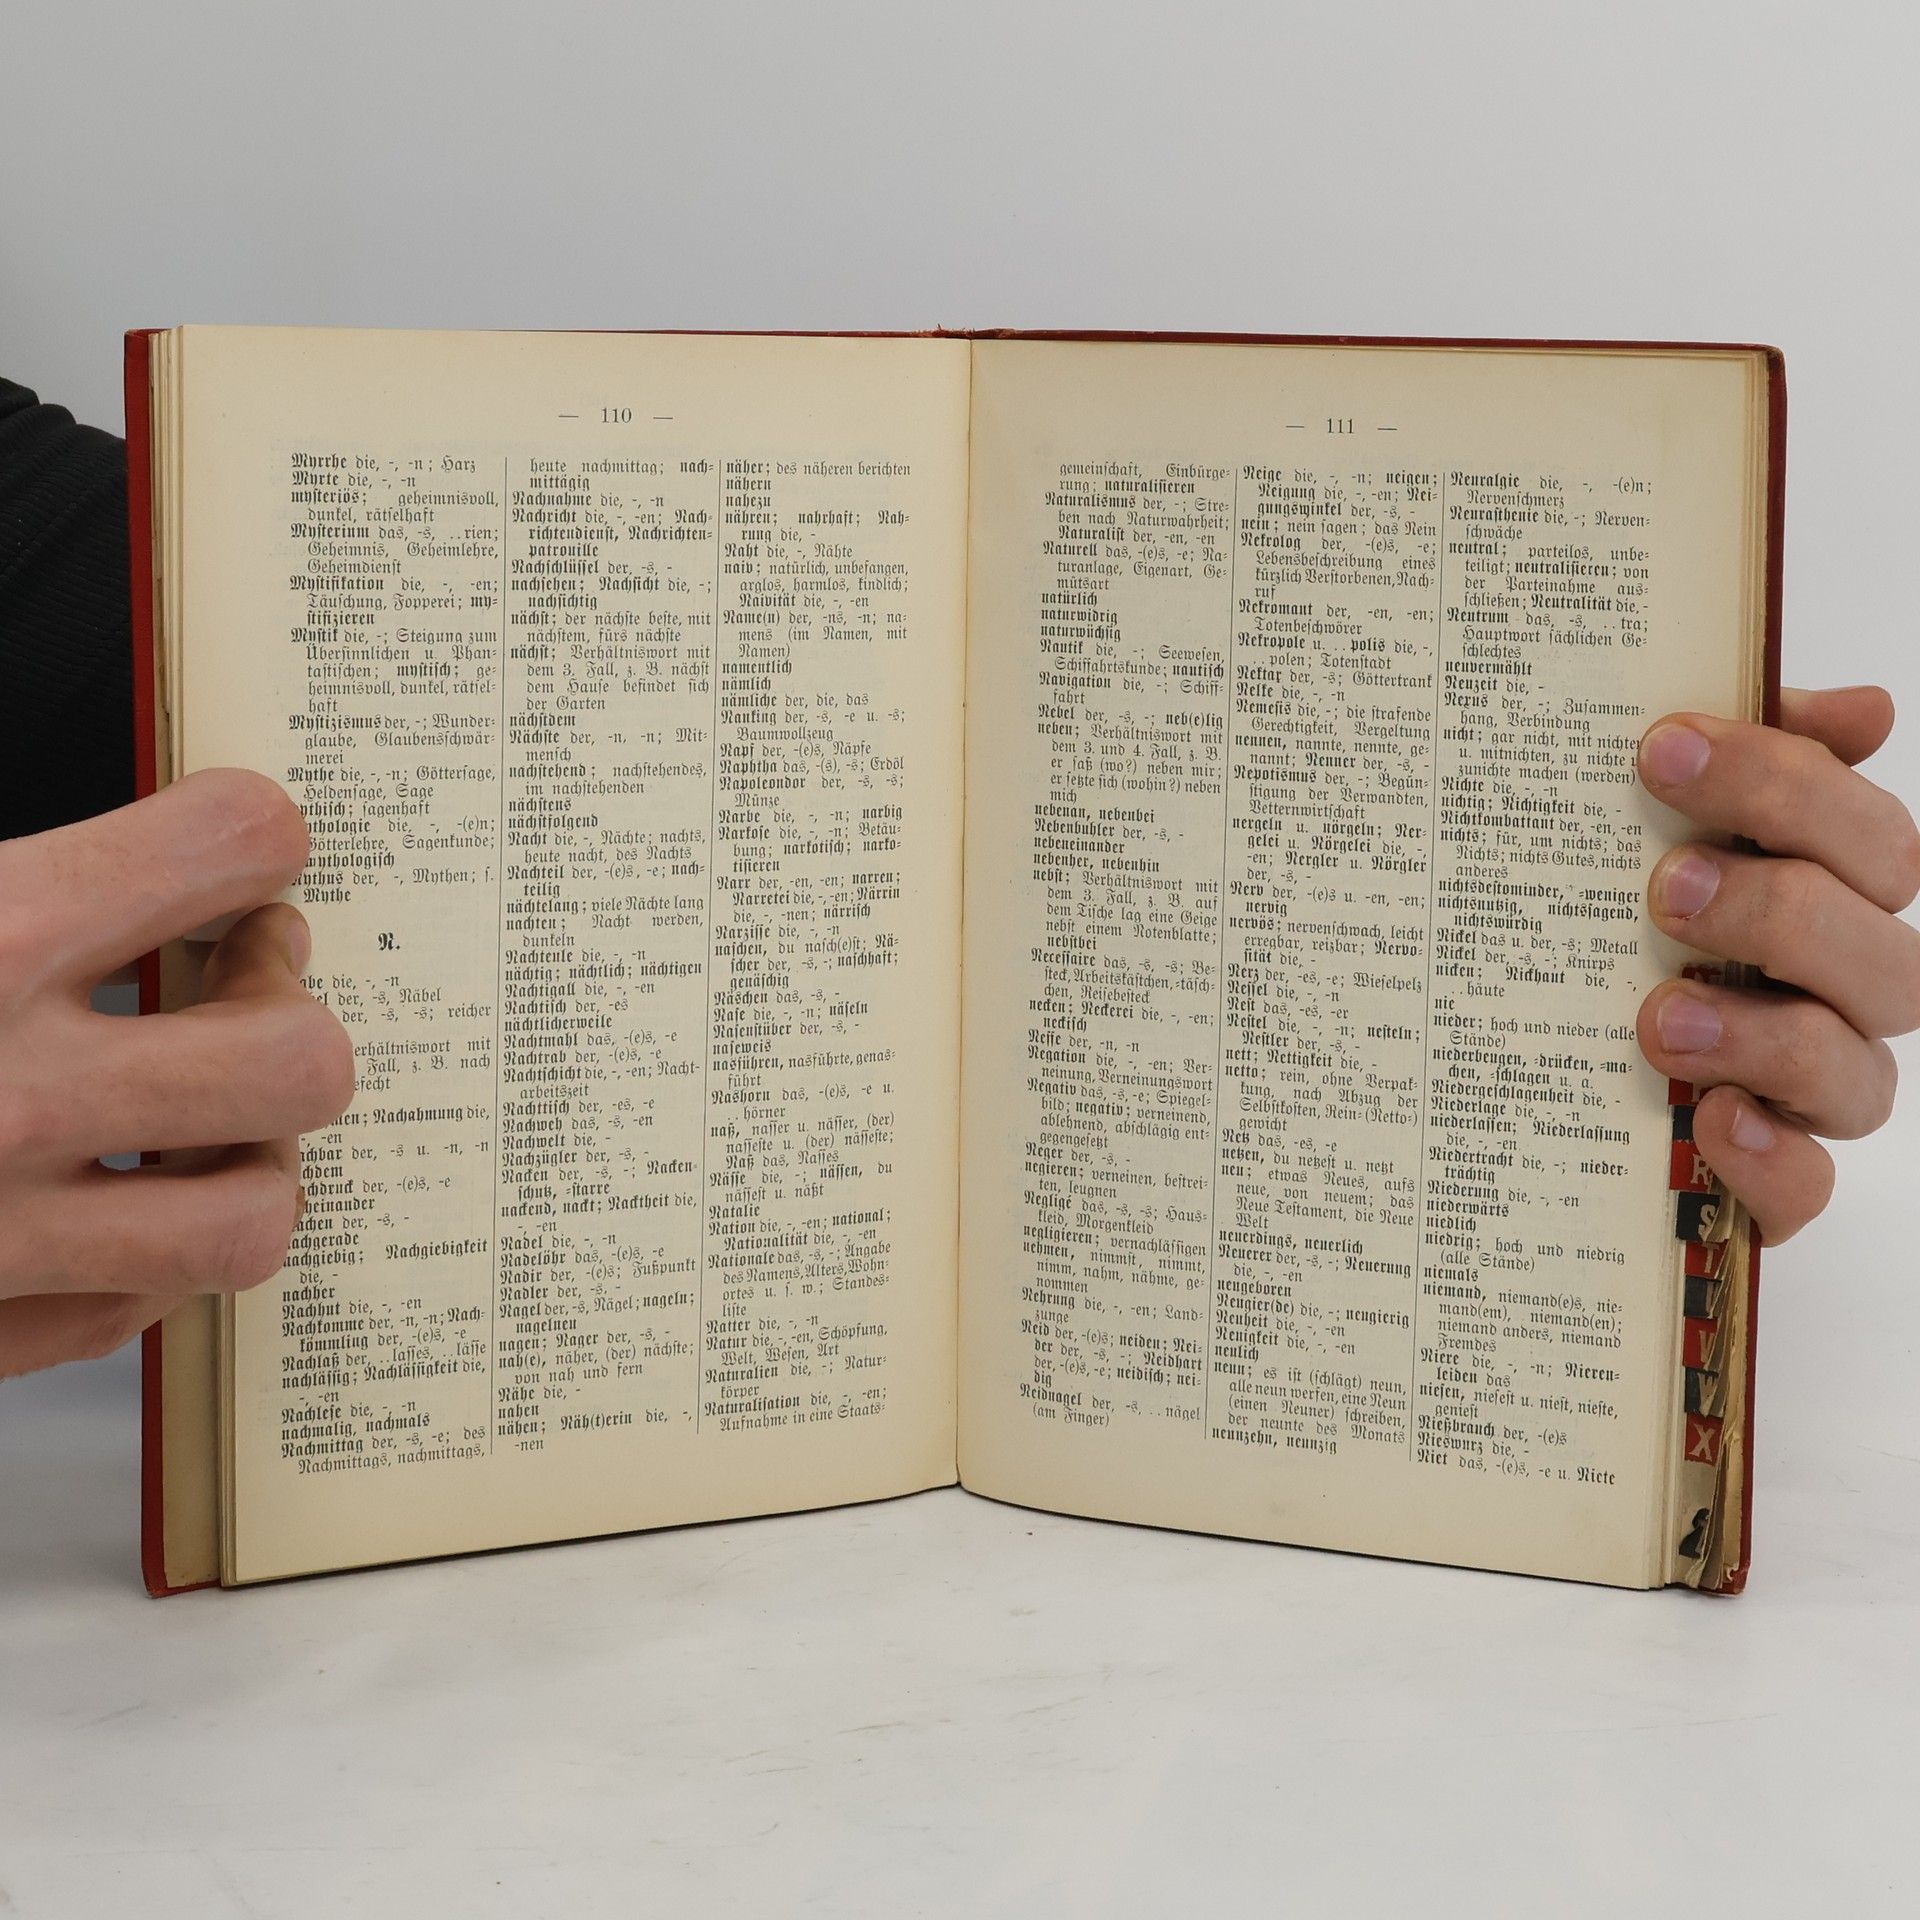 — 110 —
Myrrhe die, -, -n; Harz
Myrte die, -, -n
mysteriös; geheimnisvoll,
dunkel, rätselhaft
Mysterium das, -s, ..rien;
Geheimnis, Geheimlehre,
Geheimdienst
Mystifikation die, -, -en;
Täuschung, Fopperei; my-
stifizieren
Mystik die, -; Steigung zum
Übersinnlichen u. Phan-
tastischen; mystisch; ge-
heimnisvoll, dunkel, rätsel-
haft
Mystizismus der, -; Wunder-
glaube, Glaubensschwär-
merei
Mythe die, -, -n; Göttersage,
Heldensage, Sage
ythisch; sagenhaft
ythologie die, -, -(e)n;
Götterlehre, Sagenkunde;
mythologisch
Mythus der, -, Mythen; s.
Mythe
N.
abe die, -, -n
el der, -s, Näbel
der, -s, -s; reicher
erhältniswort mit
Fall, z. B. nach
efecht
men; Nachahmung die,
-, -en
achbar der, -s u. -n, -n
chdem
chdruck der, -(e)s, -e
heinander
achen der, -s, -
achgerade
nachgiebig; Nachgiebigkeit
die, -
nachher
Nachhut die, -, -en
Nachkomme der, -n, -n; Nach-
kömmling der, -(e)s, -e
Nachlaß der, ..lasses, ..lässe
nachlässig; Nachlässigkeit die,
-, -en
Nachlese die, -, -n
nachmalig, nachmals
Nachmittag der, -s, -e; des
Nachmittags, nachmittags,
heute nachmittag; nach-
mittägig
Nachnahme die, -, -n
Nachricht die, -, -en; Nach-
richtendienst, Nachrichten-
patrouille
Nachschlüssel der, -s, -
nachsehen; Nachsicht die, -;
nachsichtig
nächst; der nächste beste, mit
nächstem, fürs nächste
nächst; Verhältniswort mit
dem 3. Fall, z. B. nächst
dem Hause befindet sich
der Garten
nächstdem
Nächste der, -n, -n; Mit-
mensch
nachstehend; nachstehendes,
im nachstehenden
nächstens
nächstfolgend
Nacht die, -, Nächte; nachts,
heute nacht, des Nachts
Nachteil der, -(e)s, -e; nach-
teilig
nächtelang; viele Nächte lang
nachten; Nacht werden,
dunkeln
Nachteule die, -, -n
nächtig; nächtlich; nächtigen
Nachtigall die, -, -en
Nachtisch der, -es
nächtlicherweile
Nachtmahl das, -(e)s, -e
Nachtrab der, -(e)s, -e
Nachtschicht die, -, -en; Nacht-
arbeitszeit
Nachttisch der, -es, -e
Nachweh das, -s, -en
Nachwelt die, -
Nachzügler der, -s, -
Nacken der, -s, -; Nacken-
schutz, -starre
nackend, nackt; Nacktheit die,
-, -en
Nadel die, -, -n
Nadelöhr das, -(e)s, -e
Nadir der, -(e)s; Fußpunkt
Nadler der, -s, -
Nagel der, -s, Nägel; nageln;
nagelneu
nagen; Nager der, -s, -
nah(e), näher, (der) nächste;
von nah und fern
Nähe die, -
nahen
nähen; Näh(t)erin die, -,
-nen
näher; des näheren berichten
nähern
nahezu
nähren; nahrhaft; Nah-
rung die, -
Naht die, -, Nähte
naiv; natürlich, unbefangen,
arglos, harmlos, kindlich;
Naivität die, -, -en
Name(n) der, -ns, -n; na-
mens (im Namen, mit
Namen)
namentlich
nämlich
nämliche der, die, das
Nanking der, -s, -e u. -s;
Baumwollzeug
Napf der, -(e)s, Näpfe
Naphtha das, -(s), -s; Erdöl
Napoleondor der, -s, -s;
Münze
Narbe die, -, -n; narbig
Narkose die, -, -n; Betäu-
bung; narkotisch; narko-
tisieren
Narr der, -en, -en; narren;
Narretei die, -, -en; Närrin
die, -, -nen; närrisch
Narzisse die, -, -n
naschen, du nasch(e)st; Nä-
scher der, -s, -; naschhaft;
genäschig
Näschen das, -s, -
Nase die, -, -n; näseln
Nasenstüber der, -s, -
naseweis
nasführen, nasführte, genas-
führt
Nashorn das, -(e)s, -e u.
..hörner
naß, nasser u. nässer, (der)
nasseste u. (der) nässeste;
Naß das, Nasses
Nässe die, -; nässen, du
nässest u. näßt
Natalie
Nation die, -, -en; national;
Nationalität die, -, -en
Nationale das, -s, -; Angabe
des Namens, Alters, Wohn-
ortes u. s. w.; Standes-
liste
Natter die, -, -n
Natur die, -, -en, Schöpfung,
Welt, Wesen, Art
Naturalien die, -; Natur-
körper
Naturalisation die, -, -en;
Aufnahme in eine Staats-
— 111 —
gemeinschaft, Einbürge-
rung; naturalisieren
Naturalismus der, -; Stre-
ben nach Naturwahrheit;
Naturalist der, -en, -en
Naturell das, -(e)s, -e; Na-
turanlage, Eigenart, Ge-
mütsart
natürlich
naturwidrig
naturwüchsig
Nautik die, -; Seewesen,
Schiffahrtskunde; nautisch
Navigation die, -; Schiff-
fahrt
Nebel der, -s, -; neb(e)lig
neben; Verhältniswort mit
dem 3. und 4. Fall, z. B.
er saß (wo?) neben mir;
er setzte sich (wohin?) neben
mich
nebenan, nebenbei
Nebenbuhler der, -s, -
nebeneinander
nebenher, nebenhin
nebst; Verhältniswort mit
dem 3. Fall, z. B. auf
dem Tische lag eine Geige
nebst einem Notenblatte;
nebstbei
Necessaire das, -s, -s; Be-
steck, Arbeitskästchen, -täsch-
chen, Reisebesteck
necken; Neckerei die, -, -en;
neckisch
Neffe der, -n, -n
Negation die, -, -en; Ver-
neinung, Verneinungswort
Negativ das, -s, -e; Spiegel-
bild; negativ; verneinend,
ablehnend, abschlägig ent-
gegengesetzt
Neger der, -s, -
negieren; verneinen, bestrei-
ten, leugnen
Negligé das, -s, -s; Haus-
kleid, Morgenkleid
negligieren; vernachlässigen
nehmen, nimmst, nimmt,
nimm, nahm, nähme, ge-
nommen
Nehrung die, -, -en; Land-
zunge
Neid der, -(e)s; neiden; Nei-
der der, -s, -; Neidhart
der, -(e)s, -e; neidisch; nei-
dig
Neidnagel der, -s, ..nägel
(am Finger)
Neige die, -, -n; neigen;
Neigung die, -, -en; Nei-
gungswinkel der, -s, -
nein; nein sagen; das Nein
Nekrolog der, -(e)s, -e;
Lebensbeschreibung eines
kürzlich Verstorbenen, Nach-
ruf
Nekromant der, -en, -en;
Totenbeschwörer
Nekropole u. ..polis die, -,
..polen; Totenstadt
Nektar der, -s; Göttertrank
Nelke die, -, -n
Nemesis die, -; die strafende
Gerechtigkeit, Vergeltung
nennen, nannte, nennte, ge-
nannt; Nenner der, -s, -
Nepotismus der, -; Begün-
stigung der Verwandten,
Vetternwirtschaft
nergeln u. nörgeln; Ner-
gelei u. Nörgelei die, -,
-en; Nergler u. Nörgler
der, -s, -
Nerv der, -(e)s u. -en, -en;
nervig
nervös; nervenschwach, leicht
erregbar, reizbar; Nervo-
sität die, -
Nerz der, -es, -e; Wieselpelz
Nessel die, -, -n
Nest das, -es, -er
Nestel die, -, -n; nesteln;
Nestler der, -s, -
nett; Nettigkeit die, -
netto; rein, ohne Verpak-
kung, nach Abzug der
Selbstkosten, Rein- (Netto-)
gewicht
Netz das, -es, -e
netzen, du netzest u. netzt
neu; etwas Neues, aufs
neue, von neuem; das
Neue Testament, die Neue
Welt
neuerdings, neuerlich
Neuerer der, -s, -; Neuerung
die, -, -en
neugeboren
Neugier(de) die, -; neugierig
Neuheit die, -, -en
Neuigkeit die, -, -en
neulich
neun; es ist (schlägt) neun,
alle neun werfen, eine Neun
(einen Neuner) schreiben,
der neunte des Monats
neunzehn, neunzig
Neuralgie die, -, -(e)n;
Nervenschmerz
Neurasthenie die, -; Nerven-
schwäche
neutral; parteilos, unbe-
teiligt; neutralisieren; von
der Parteinahme aus-
schließen; Neutralität die, -
Neutrum das, -s, ..tra;
Hauptwort sächlichen Ge-
schlechtes
neuvermählt
Neuzeit die, -
Nexus der, -; Zusammen-
hang, Verbindung
nicht; gar nicht, mit nichten
u. mitnichten, zu nichte u.
zunichte machen (werden)
Nichte die, -, -n
nichtig; Nichtigkeit die, -
Nichtkombattant der, -en, -en
nichts; für, um nichts; das
Nichts; nichts Gutes, nichts
anderes
nichtsdestominder, -weniger
nichtsnutzig, nichtssagend,
nichtswürdig
Nickel das u. der, -s; Metall
Nickel der, -s, -; Knirps
nicken; Nickhaut die, -,
..häute
nie
nieder; hoch und nieder (alle
Stände)
niederbeugen, -drücken, -ma-
chen, -schlagen u. a.
Niedergeschlagenheit die, -
Niederlage die, -, -n
niederlassen; Niederlassung
die, -, -en
Niedertracht die, -; nieder-
trächtig
Niederung die, -, -en
niederwärts
niedlich
niedrig; hoch und niedrig
(alle Stände)
niemals
niemand, niemand(e)s, nie-
mand(em), niemand(en);
niemand anders, niemand
Fremdes
Niere die, -, -n; Nieren-
leiden das
niesen, niesest u. niest, nieste,
geniest
Nießbrauch der, -(e)s
Nieswurz die, -
Niet das, -(e)s, -e u. Niete
R
S
T
V
W
X